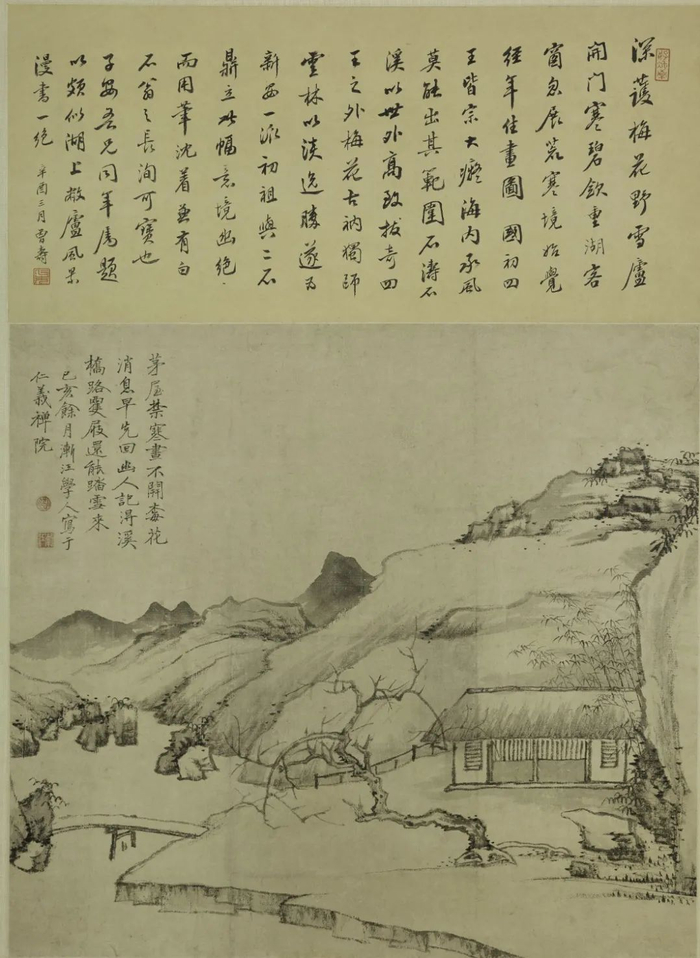 深護梅花野雪廬
開門寒碧欲重湖客
窗忽展荒寒境始覺
經年住畫圖 國初四
王皆宗大癡海內承風
莫能出其範圍石濤石
溪以世外高致拔奇四
王之外梅花古衲獨師
雲林以淡逸勝遂為
新安一派初祖與二石
鼎立此幅意境幽絕
而用筆沈着兼有白
石翁之長洵可寶也
子安吾兄同年属題
以頗似湖上敝廬風景
漫書一絕 辛酉三月曾壽
茅屋禁寒晝不開梅花
消息早先回幽人記得溪
橋路雙屐還能踏雪來
己亥餘月漸江學人寫于
仁義禅院